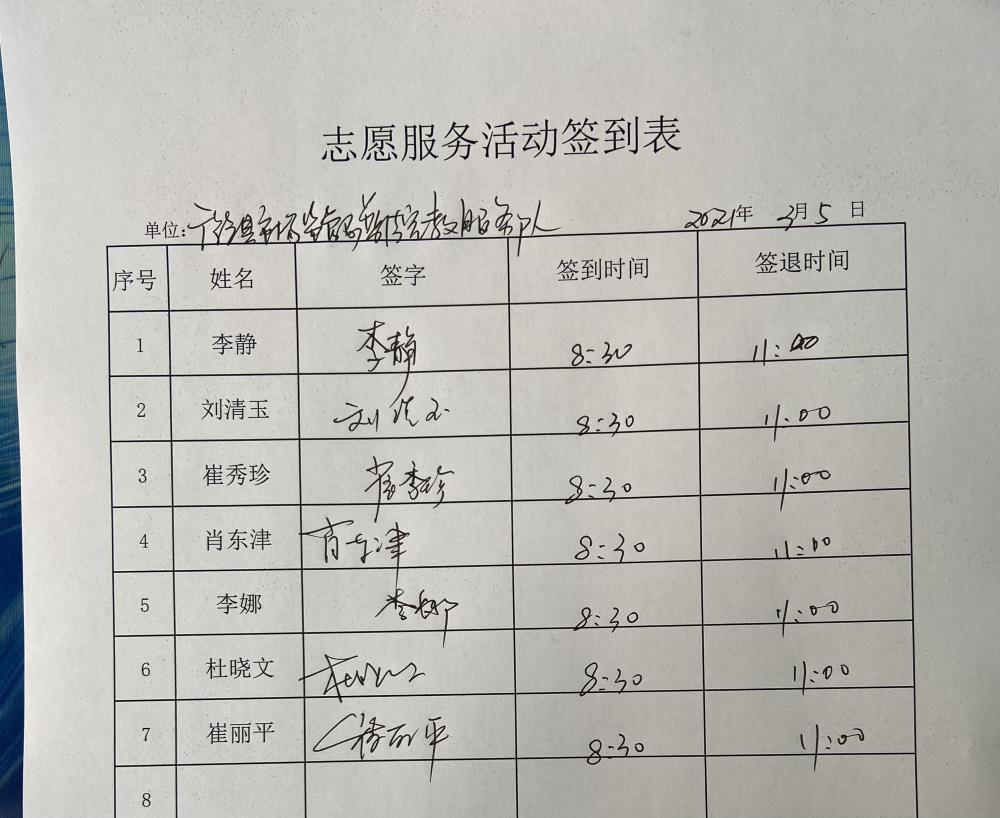 志愿服务活动签到表
单位: 县市场监管局 服务队 2021年 3月5日
序号 姓名 签字 签到时间 签退时间
1 李静 李静 8:30 11:00
2 刘清玉 刘清玉 8:30 11:00
3 崔秀珍 崔秀珍 8:30 11:00
4 肖东津 肖东津 8:30 11:00
5 李娜 李娜 8:30 11:00
6 杜晓文 8:30 11:00
7 崔丽平 崔丽平 8:30 11:00
8